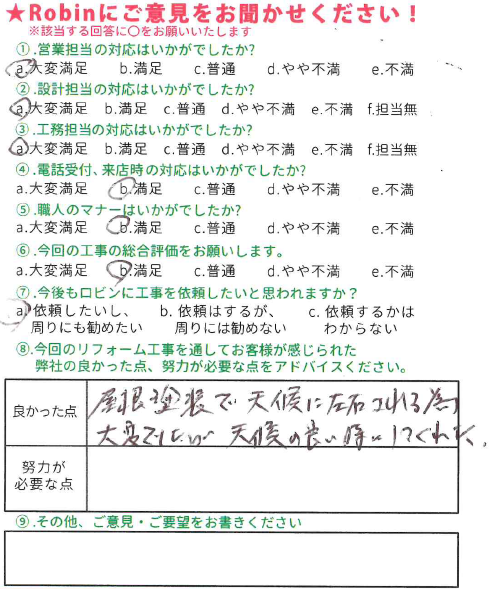 ★Robinにご意見をお聞かせください！
※該当する回答に○をお願いいたします
①.営業担当の対応はいかがでしたか?
a.大変満足 b.満足 c.普通 d.やや不満 e.不満
②.設計担当の対応はいかがでしたか?
a.大変満足 b.満足 c.普通 d.やや不満 e.不満 f.担当無
③.工務担当の対応はいかがでしたか?
a.大変満足 b.満足 c.普通 d.やや不満 e.不満 f.担当無
④.電話受付、来店時の対応はいかがでしたか?
a.大変満足 b.満足 c.普通 d.やや不満 e.不満
⑤.職人のマナーはいかがでしたか?
a.大変満足 b.満足 c.普通 d.やや不満 e.不満
⑥.今回の工事の総合評価をお願いします。
a.大変満足 b.満足 c.普通 d.やや不満 e.不満
⑦.今後もロビンに工事を依頼したいと思われますか？
a.依頼したいし、 b.依頼はするが、 c.依頼するかは
周りにも勧めたい 周りには勧めない わからない
⑧.今回のリフォーム工事を通してお客様が感じられた
弊社の良かった点、努力が必要な点をアドバイスください。
良かった点
屋根塗装で天候に左右される為
大変でしたが天候の良い時にしてくれた。
努力が
必要な点
⑨.その他、ご意見・ご要望をお書きください